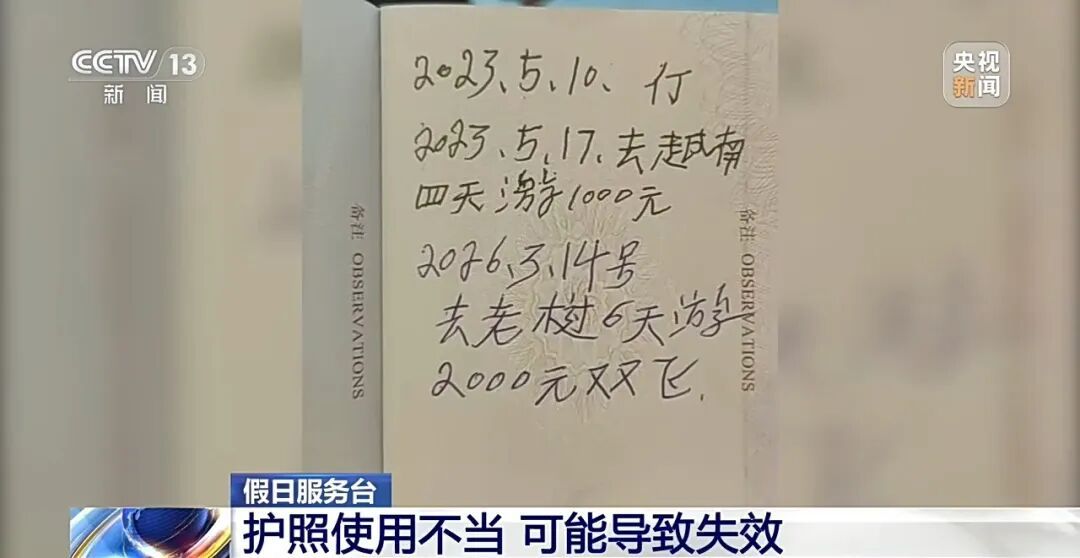 CCTV 13
新闻
央视
新闻
2023、5、10、付
2023、5、17、去越南
四天游1000元
2026、3、14号
去老树6天游
2000元双飞.
备注 OBSERVATIONS
备注 OBSERVATIONS
假日服务台
护照使用不当 可能导致失效